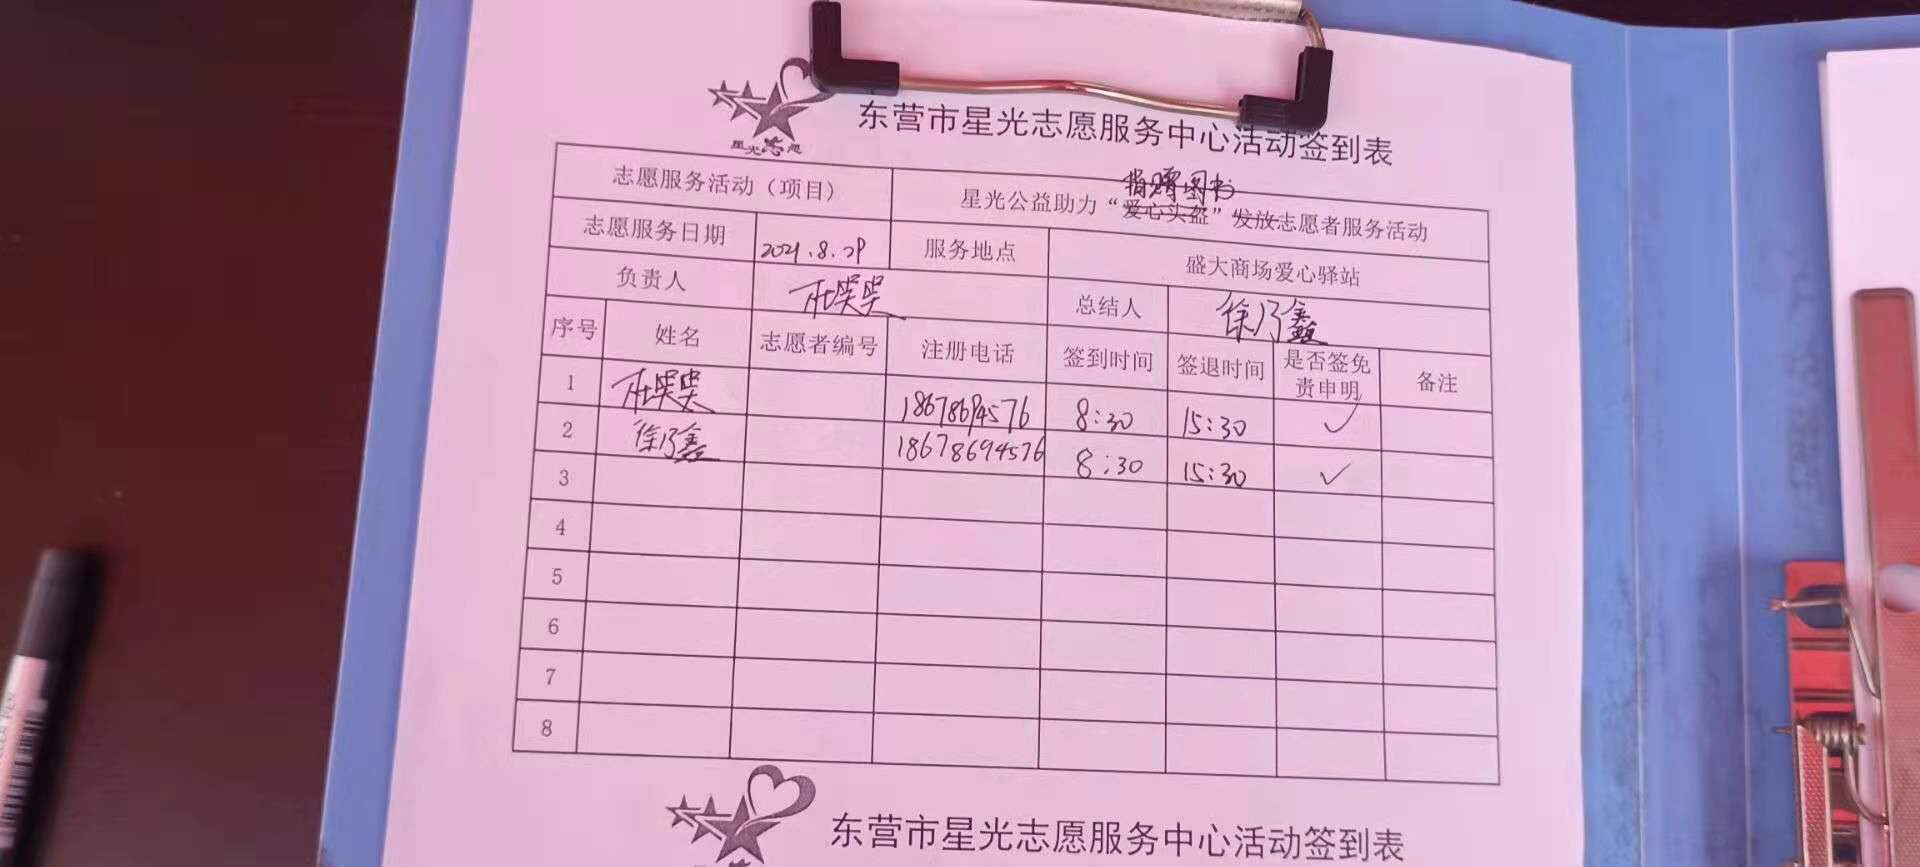 东营市星光志愿服务中心活动签到表
星光志愿
志愿服务活动（项目） 星光公益助力“爱心头盔”发放志愿者服务活动
捐赠图书
志愿服务日期 2021.8.29 服务地点 盛大商场爱心驿站
负责人 总结人 徐乃鑫
序号 姓名 志愿者编号 注册电话 签到时间 签退时间 是否签免责申明 备注
1 18678694576 8:30 15:30 ✓
2 徐乃鑫 18678694576 8:30 15:30 ✓
3
4
5
6
7
8
东营市星光志愿服务中心活动签到表